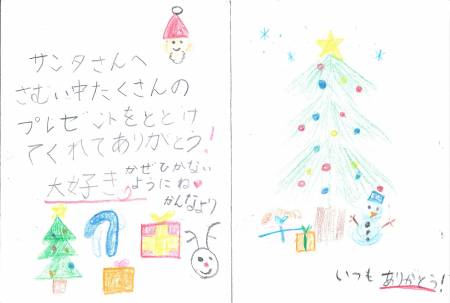 サンタさんへ
さむい中たくさんの
プレゼントをととけ
てくれてありがとう!
大好き。
かぜひかない
ようにね♥
かんなより
いつもありがとう!